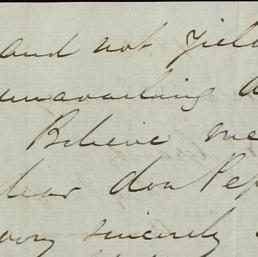 and not yiel
unavailing
Believe me
dear don Pep
very sincerely